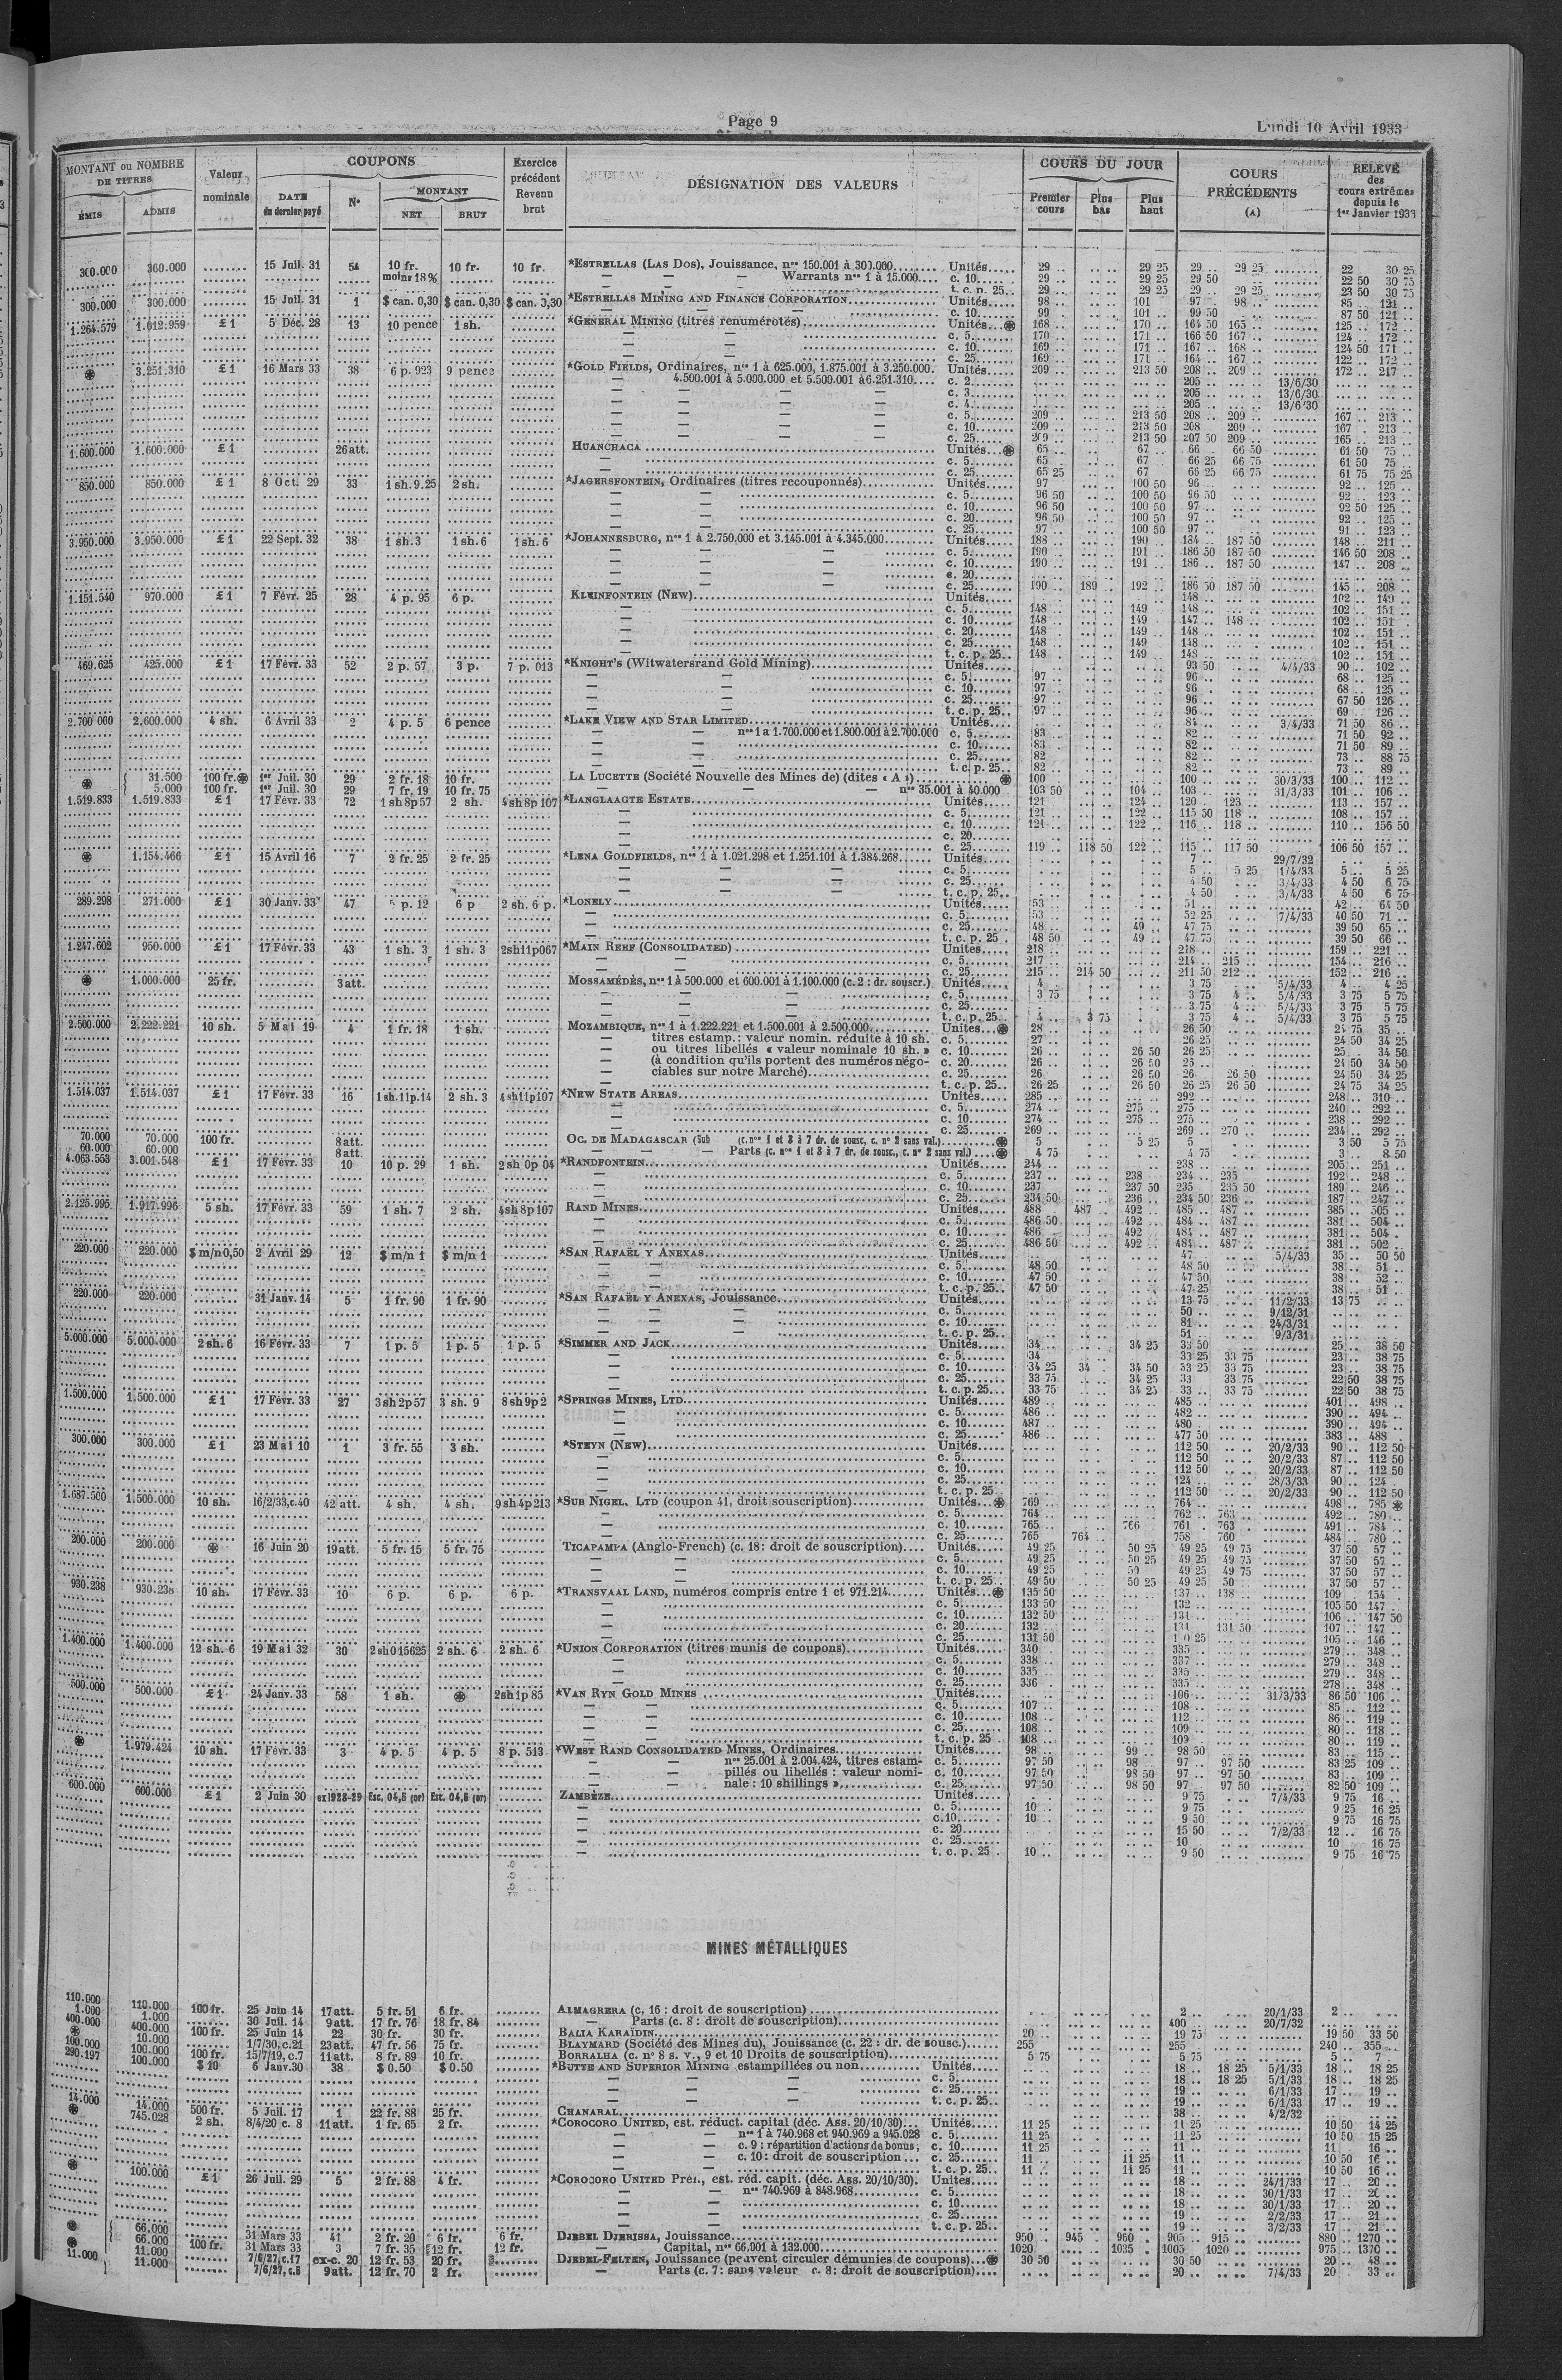 Page 9
Lundi 10 Avril 1933
MONTANT ou NOMBRE DE TITRES
ÉMIS ADMIS
Valeur nominale
COUPONS
DATE du dernier payé
N°
MONTANT
NET BRUT
Exercice précédent Revenu brut
DÉSIGNATION DES VALEURS
COURS DU JOUR
Premier cours
Plus bas
Plus haut
COURS PRÉCÉDENTS (A)
RELEVÉ des cours extrêmes depuis le 1er Janvier 1933
300.000 360.000 ........ 15 Juil. 31 54 10 fr. moins 18% 10 fr. 10 fr. *ESTRELLAS (LAS DOS), Jouissance, nos 150.001 à 300.000 Unités 29 .. 29 25 29 .. 29 25 22 30 25
— Warrants nos 1 à 15.000 c. 10 29 .. 29 25 29 50 22 50 30 75
t. c. p. 25 29 .. 29 25 29 .. 29 25 23 50 30 75
300.000 300.000 15 Juil. 31 1 $ can. 0,30 $ can. 0,30 $ can. 0,30 *ESTRELLAS MINING AND FINANCE CORPORATION Unités 98 .. 101 97 98 .. 85 .. 121 ..
c. 10 99 .. 101 .. 99 50 87 50 121 ..
1.264.579 1.012.959 £ 1 5 Déc. 28 13 10 pence 1 sh. *GENERAL MINING (titres renumérotés) Unités 168 .. 170 .. 164 50 165 .. 125 .. 172 ..
— c. 5 170 .. 171 .. 166 50 167 .. 124 .. 172 ..
— c. 10 169 .. 171 .. 167 .. 168 .. 124 50 171 ..
— c. 25 169 .. 171 .. 164 .. 167 .. 122 .. 172 ..
3.251.310 £ 1 16 Mars 33 38 6 p. 923 9 pence *GOLD FIELDS, Ordinaires, nos 1 à 625.000, 1.875.001 à 3.250.000. Unités 209 .. 213 50 208 .. 209 .. 172 .. 217 ..
— 4.500.001 à 5.000.000 et 5.500.001 à 6.251.310 c. 2 205 .. 13/6/30
— c. 3 205 .. 13/6/30
— c. 4 205 .. 13/6/30
— c. 5 209 .. 213 50 208 .. 209 .. 167 .. 213 ..
— c. 10 209 .. 213 50 208 209 .. 167 .. 213 ..
— c. 25 209 .. 213 50 207 50 209 .. 165 .. 213 ..
1.600.000 1.600.000 £ 1 26 att. HUANCHACA Unités 65 .. 67 .. 66 .. 66 50 61 50 75 ..
— c. 5 65 .. 67 .. 66 25 66 75 61 50 75 ..
— c. 25 65 25 67 66 25 66 75 61 75 75 25
850.000 850.000 £ 1 8 Oct. 29 33 1 sh. 9.25 2 sh. *JAGERSFONTEIN, Ordinaires (titres recouponnés) Unités 97 100 50 96 .. 92 .. 125 ..
— c. 5 96 50 100 50 96 50 92 .. 123 ..
— c. 10 96 50 100 50 97 .. 92 50 125 ..
— c. 20 96 50 100 50 97 .. 92 .. 125 ..
— c. 25 97 .. 100 50 97 .. 91 .. 123 ..
3.950.000 3.950.000 £ 1 22 Sept. 32 38 1 sh. 3 1 sh. 6 1 sh. 6 *JOHANNESBURG, nos 1 à 2.750.000 et 3.145.001 à 4.345.000 Unités 188 .. 190 .. 184 .. 187 50 148 .. 211 ..
— c. 5 190 .. 191 .. 186 50 187 50 146 50 208 ..
— c. 10 190 .. 191 .. 186 .. 187 50 147 .. 208 ..
— c. 20
— c. 25 190 .. 189 .. 192 .. 186 50 187 50 145 .. 208 ..
1.151.540 970.000 £ 1 7 Févr. 25 28 4 p. 95 6 p. KLEINFONTEIN (New) Unités 148 .. 102 .. 149 ..
— c. 5 148 .. 149 148 .. 102 .. 151 ..
— c. 10 148 .. 149 147 .. 148 .. 102 .. 151 ..
— c. 20 148 .. 149 148 .. 102 .. 151 ..
— c. 25 148 .. 149 148 .. 102 .. 151 ..
t. c. p. 25 148 .. 149 148 .. 102 .. 151 ..
469.625 425.000 £ 1 17 Févr. 33 52 2 p. 57 3 p. 7 p. 013 *KNIGHT'S (Witwatersrand Gold Mining) Unités 93 50 4/4/33 90 .. 102 ..
— c. 5 97 .. 96 .. 68 .. 125 ..
— c. 10 97 .. 96 .. 68 .. 125 ..
— c. 25 97 .. 96 .. 67 50 126 ..
t. c. p. 25 97 .. 96 .. 69 .. 126 ..
2.700.000 2.600.000 4 sh. 6 Avril 33 2 4 p. 5 6 pence *LAKE VIEW AND STAR LIMITED Unités 84 .. 3/4/33 71 50 86 ..
— nos 1 à 1.700.000 et 1.800.001 à 2.700.000 c. 5 83 .. 82 .. 71 50 92 ..
— c. 10 83 .. 82 .. 71 50 89 ..
— c. 25 82 .. 82 .. 73 .. 88 75
t. c. p. 25 82 .. 82 .. 73 .. 89 ..
31.500 100 fr. 1er Juil. 30 29 2 fr. 18 10 fr. LA LUCETTE (Société Nouvelle des Mines de) (dites « A ») 100 100 .. 30/3/33 100 .. 112 ..
5.000 100 fr. 1er Juil. 30 29 7 fr. 19 10 fr. 75 — nos 35.001 à 40.000 103 50 104 .. 103 .. 31/3/33 101 .. 106 ..
1.519.833 1.519.833 £ 1 17 Févr. 33 72 1 sh 8p 57 2 sh. 4sh 8p 107 *LANGLAAGTE ESTATE Unités 121 .. 124 .. 120 .. 123 .. 113 .. 157 ..
— c. 5 121 .. 122 .. 115 50 118 .. 108 .. 157 ..
— c. 10 121 .. 122 .. 116 .. 118 .. 110 .. 156 50
— c. 20
— c. 25 119 .. 118 50 122 .. 115 .. 117 50 106 50 157 ..
1.154.466 £ 1 15 Avril 16 7 2 fr. 25 2 fr. 25 *LENA GOLDFIELDS, nos 1 à 1.021.298 et 1.251.101 à 1.384.268 Unités 7 .. 29/7/32
— c. 5 5 .. 5 25 1/4/33 5 .. 5 25
— c. 25 4 50 3/4/33 4 50 6 75
t. c. p. 25 4 50 3/4/33 4 50 6 75
289.298 271.000 £ 1 30 Janv. 33 47 p. 12 6 p 2 sh. 6 p. *LONELY Unités 53 .. 51 .. 42 .. 64 50
— c. 5 53 .. 52 25 7/4/33 40 50 71 ..
— c. 25 48 .. 49 .. 47 75 39 50 65 ..
t. c. p. 25 48 50 49 .. 47 75 39 50 66 ..
1.247.602 950.000 £ 1 17 Févr. 33 43 1 sh. 3 1 sh. 3 2sh11p067 *MAIN REEF (CONSOLIDATED) Unités 218 .. 218 .. 159 .. 221 ..
— c. 5 217 214 .. 215 .. 154 .. 216 ..
— c. 25 215 .. 214 50 211 50 212 .. 152 .. 216 ..
1.000.000 25 fr. 3 att. MOSSAMÉDÈS, nos 1 à 500.000 et 600.001 à 1.100.000 (c. 2 : dr. souscr.) Unités 4 .. 3 75 5/4/33 4 .. 4 25
— c. 5 3 75 3 75 4 .. 5/4/33 3 75 5 75
— c. 25 3 75 4 .. 5/4/33 3 75 5 75
t. c. p. 25 4 .. 3 75 3 75 4 .. 5/4/33 3 75 5 75
2.500.000 2.222.221 10 sh. 5 Mai 19 4 1 fr. 18 1 sh. MOZAMBIQUE, nos 1 à 1.222.221 et 1.500.001 à 2.500.000 Unités 28 .. 26 50 24 75 35 ..
— titres estamp. : valeur nomin. réduite à 10 sh. c. 5 27 .. 26 25 24 50 34 25
— ou titres libellés « valeur nominale 10 sh. » c. 10 26 .. 26 50 26 25 25 .. 34 50
— (à condition qu'ils portent des numéros négo- c. 20 26 .. 26 50 26 .. 24 50 34 50
— ciables sur notre Marché) c. 25 26 26 50 26 26 50 24 50 34 25
t. c. p. 25 26 25 26 50 26 25 26 50 24 75 34 25
1.514.037 1.514.037 £ 1 17 Févr. 33 16 1 sh. 11p. 14 2 sh. 3 4sh11p107 *NEW STATE AREAS Unités 285 .. 292 .. 248 .. 310 ..
— c. 5 274 .. 275 .. 275 .. 240 .. 292 ..
— c. 10 274 .. 275 .. 275 .. 238 .. 292 ..
— c. 25 269 .. 269 .. 270 .. 234 .. 292 ..
70.000 70.000 100 fr. 8 att. OC. DE MADAGASCAR (Sub (c. nos 1 et 3 à 7 dr. de sousc, c. n° 2 sans val.) 5 5 25 5 3 50 5 75
60.000 60.000 8 att. — Parts (c. nos 1 et 3 à 7 dr. de sousc., c. n° 2 sans val.) 4 75 4 75 3 .. 8 50
4.063.553 3.001.548 £ 1 17 Févr. 33 10 10 p. 29 1 sh. 2 sh 0p 04 *RANDFONTEIN Unités 244 .. 238 .. 205 .. 251 ..
— c. 5 237 .. 238 .. 234 .. 235 .. 192 .. 248 ..
— c. 10 237 237 50 235 .. 235 50 189 .. 246 ..
— c. 25 234 50 236 .. 234 50 236 .. 187 .. 247 ..
2.125.995 1.917.996 5 sh. 17 Févr. 33 59 1 sh. 7 2 sh. 4sh 8p 107 RAND MINES Unités 488 487 .. 492 .. 485 .. 487 .. 385 .. 505 ..
— c. 5 486 50 492 .. 484 .. 487 .. 381 .. 504 ..
— c. 10 486 492 .. 484 .. 487 .. 381 .. 504 ..
— c. 25 486 50 492 .. 484 .. 487 .. 381 .. 502 ..
220.000 220.000 $ m/n 0,50 2 Avril 29 12 $ m/n 1 $ m/n 1 *SAN RAFAËL Y ANEXAS Unités 47 .. 5/4/33 35 .. 50 50
— c. 5 48 50 48 50 38 .. 51 ..
— c. 10 47 50 47 50 38 .. 52 ..
t. c. p. 25 47 50 47 25 38 .. 51 ..
220.000 220.000 31 Janv. 14 5 1 fr. 90 1 fr. 90 *SAN RAFAËL Y ANEXAS, Jouissance Unités 13 75 11/2/33 13 75
— c. 5 50 .. 9/12/31
— c. 10 81 .. 24/3/31
t. c. p. 25 51 .. 9/3/31
5.000.000 5.000.000 2 sh. 6 16 Févr. 33 7 1 p. 5 1 p. 5 1 p. 5 *SIMMER AND JACK Unités 34 .. 34 25 33 50 25 .. 38 50
— c. 5 34 33 25 33 75 23 .. 38 75
— c. 10 34 25 34 34 50 33 25 33 75 23 .. 38 75
— c. 25 33 75 34 25 33 33 75 22 50 38 75
t. c. p. 25 33 75 34 25 33 .. 33 75 22 50 38 75
1.500.000 1.500.000 £ 1 17 Févr. 33 27 3 sh 2p 57 3 sh. 9 8 sh 9p 2 *SPRINGS MINES, LTD Unités 489 .. 485 .. 401 .. 498 ..
— c. 5 486 .. 482 .. 390 .. 494 ..
— c. 10 487 480 390 .. 494 ..
— c. 25 486 .. 477 50 383 .. 488 ..
300.000 300.000 £ 1 23 Mai 10 1 3 fr. 55 3 sh. *STEYN (New) Unités 112 50 20/2/33 90 .. 112 50
— c. 5 112 50 20/2/33 87 .. 112 50
— c. 10 112 50 20/2/33 87 .. 112 50
— c. 25 124 .. 28/3/33 90 .. 124 ..
t. c. p. 25 112 50 20/2/33 90 .. 112 50
1.687.500 1.500.000 10 sh. 16/2/33, c.40 42 att. 4 sh. 4 sh. 9 sh 4p 213 *SUB NIGEL, LTD (coupon 41, droit souscription) Unités 769 .. 764 .. 498 .. 785
— c. 5 764 .. 762 .. 763 .. 492 .. 780 ..
— c. 10 765 .. 766 761 .. 763 .. 491 .. 784 ..
— c. 25 765 764 .. 758 760 484 .. 780 ..
200.000 200.000 16 Juin 20 19 att. 5 fr. 15 5 fr. 75 TICAPAMPA (Anglo-French) (c. 18 : droit de souscription) Unités 49 25 50 25 49 25 49 75 37 50 57 ..
— c. 5 49 25 50 25 49 25 49 75 37 50 57 ..
— c. 10 49 25 50 49 25 49 75 37 50 57 ..
t. c. p. 25 49 50 50 25 49 25 50 .. 37 50 57 ..
930.238 930.238 10 sh. 17 Févr. 33 10 6 p. 6 p. 6 p. *TRANSVAAL LAND, numéros compris entre 1 et 971.214 Unités 135 50 137 .. 138 .. 109 .. 154 ..
— c. 5 133 50 132 .. 105 50 147 ..
— c. 10 132 50 131 .. 106 .. 147 50
— c. 20 132 .. 131 .. 131 50 107 .. 147 ..
— c. 25 131 50 105 .. 146 ..
1.400.000 1.400.000 12 sh. 6 19 Mai 32 30 2 sh 015625 2 sh. 6 2 sh. 6 *UNION CORPORATION (titres munis de coupons) Unités 340 335 .. 279 .. 348 ..
— c. 5 338 337 .. 279 .. 348 ..
— c. 10 335 335 .. 279 .. 348 ..
— c. 25 336 .. 335 .. 278 .. 348 ..
500.000 500.000 £ 1 24 Janv. 33 58 1 sh. 2sh 1p 85 *VAN RYN GOLD MINES Unités 106 .. 31/3/33 86 50 106 ..
— c. 5 107 108 .. 85 .. 112 ..
— c. 10 108 .. 112 .. 86 .. 119 ..
— c. 25 108 .. 109 .. 80 .. 118 ..
t. c. p. 25 108 .. 109 .. 80 .. 119 ..
1.979.424 10 sh. 17 Févr. 33 3 4 p. 5 4 p. 5 8 p. 513 *WEST RAND CONSOLIDATED MINES, Ordinaires Unités 98 .. 99 .. 98 50 83 .. 115 ..
— nos 25.001 à 2.004.424, titres estam- c. 5 97 50 98 .. 97 .. 97 50 83 25 109 ..
— pillés ou libellés : valeur nomi- c. 10 97 50 98 50 97 .. 97 50 83 .. 109 ..
— nale : 10 shillings » c. 25 97 50 98 50 97 .. 97 50 82 50 109 ..
600.000 600.000 £ 1 2 Juin 30 ex 1928-29 Esc. 04,5 (or) Esc. 04,5 (or) ZAMBÈZE Unités 9 75 7/4/33 9 75 16 ..
— c. 5 10 .. 9 75 9 25 16 25
— c. 10 10 .. 9 50 9 75 16 75
— c. 20 15 50 7/2/33 12 .. 16 75
— c. 25 10 .. 10 16 75
— t. c. p. 25 10 .. 9 50 9 75 16 75
MINES MÉTALLIQUES
110.000 110.000 100 fr. 25 Juin 14 17 att. 5 fr. 51 6 fr. ALMAGRERA (c. 16 : droit de souscription) 2 .. 20/1/33 2 ..
1.000 1.000 30 Juil. 14 9 att. 17 fr. 76 18 fr. 84 — Parts (c. 8 : droit de souscription) 400 .. 20/7/32
400.000 400.000 100 fr. 25 Juin 14 22 30 fr. 30 fr. BALIA KARAÏDIN 20 .. 19 75 19 50 33 50
10.000 1/7/30, c.21 23 att. 47 fr. 56 75 fr. BLAYMARD (Société des Mines du), Jouissance (c. 22 : dr. de sousc.) 255 255 .. 240 .. 355 ..
100.000 100.000 100 fr. 15/7/19, c.7 11 att. 8 fr. 89 10 fr. BORRALHA (c. n° 8 s. v., 9 et 10 Droits de souscription) 5 75 5 75 5 .. 7 ..
290.197 100.000 $ 10 6 Janv. 30 38 $ 0.50 $ 0.50 *BUTTE AND SUPERIOR MINING estampillées ou non Unités 18 .. 18 25 5/1/33 18 .. 18 25
— c. 5 18 .. 18 25 5/1/33 18 .. 18 25
— c. 25 19 .. 6/1/33 17 .. 19 ..
t. c. p. 25 19 .. 6/1/33 17 .. 19 ..
14.000 14.000 500 fr. 5 Juil. 17 1 22 fr. 88 25 fr. CHANARAL 38 .. 4/2/32
745.028 2 sh. 8/4/20 c. 8 11 att. 1 fr. 65 2 fr. *COROCORO UNITED, est. réduct. capital (déc. Ass. 20/10/30) Unités 11 25 11 25 10 50 14 25
— nos 1 à 740.968 et 940.969 à 945.028 c. 5 11 25 11 25 10 50 15 25
— c. 9 : répartition d'actions de bonus ; c. 10 11 25 11 .. 11 16 ..
— c. 10 : droit de souscription c. 25 11 .. 11 25 11 .. 10 50 16 ..
t. c. p. 25 11 .. 11 25 11 .. 10 50 16 ..
100.000 £ 1 26 Juil. 29 5 2 fr. 88 4 fr. *COROCORO UNITED Préf., est. réd. capit. (déc. Ass. 20/10/30). Unités 18 .. 24/1/33 17 .. 20 ..
— nos 740.969 à 848.968 c. 5 18 .. 30/1/33 17 .. 20 ..
— c. 10 18 .. 30/1/33 17 .. 20 ..
— c. 25 19 .. 2/2/33 17 .. 21 ..
t. c. p. 25 19 .. 3/2/33 17 .. 21 ..
66.000 31 Mars 33 41 2 fr. 20 6 fr. 6 fr. DJEBEL DJERISSA, Jouissance 950 .. 945 .. 960 .. 905 .. 915 .. 880 .. 1270 ..
66.000 100 fr. 31 Mars 33 3 7 fr. 35 12 fr. 12 fr. — Capital, nos 66.001 à 132.000 1020 1035 .. 1005 1020 .. 975 .. 1370 ..
11.000 7/6/27, c.17 ex-c. 20 12 fr. 53 20 fr. DJEBEL-FELTEN, Jouissance (peuvent circuler démunies de coupons) 30 50 30 50 20 .. 48 ..
11.000 11.000 7/6/27, c.5 9 att. 12 fr. 70 2 fr. — Parts (c. 7 : sans valeur c. 8 : droit de souscription) 20 .. 7/4/33 20 33 ..